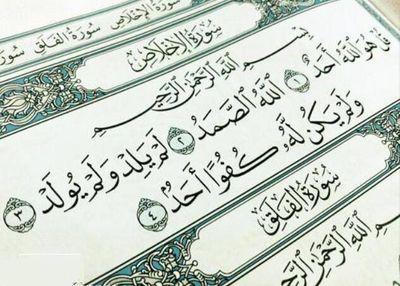 سُورَةُ الإِخْلَاصِ سُورَةُ الفَلَقِ سُورَةُ
سُورَةُ الإِخْلَاصِ
بِسْمِ ٱللَّهِ ٱلرَّحْمَٰنِ ٱلرَّحِيمِ
قُلْ هُوَ ٱللَّهُ أَحَدٌ ١ ٱللَّهُ ٱلصَّمَدُ ٢ لَمْ يَلِدْ وَلَمْ يُولَدْ ٣
وَلَمْ يَكُن لَّهُۥ كُفُوًا أَحَدٌۢ ٤
سُورَةُ الفَلَقِ
بِسْمِ ٱللَّهِ ٱلرَّحْمَٰنِ ٱلرَّحِيمِ